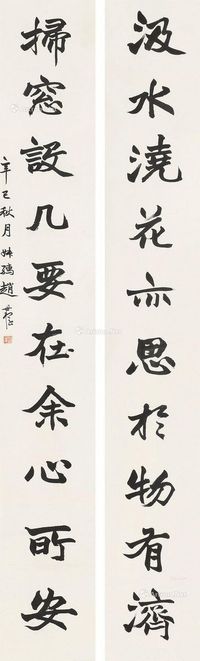 汲水澆花亦思於物有濟
掃窓設几要在余心所安
辛巳秋月